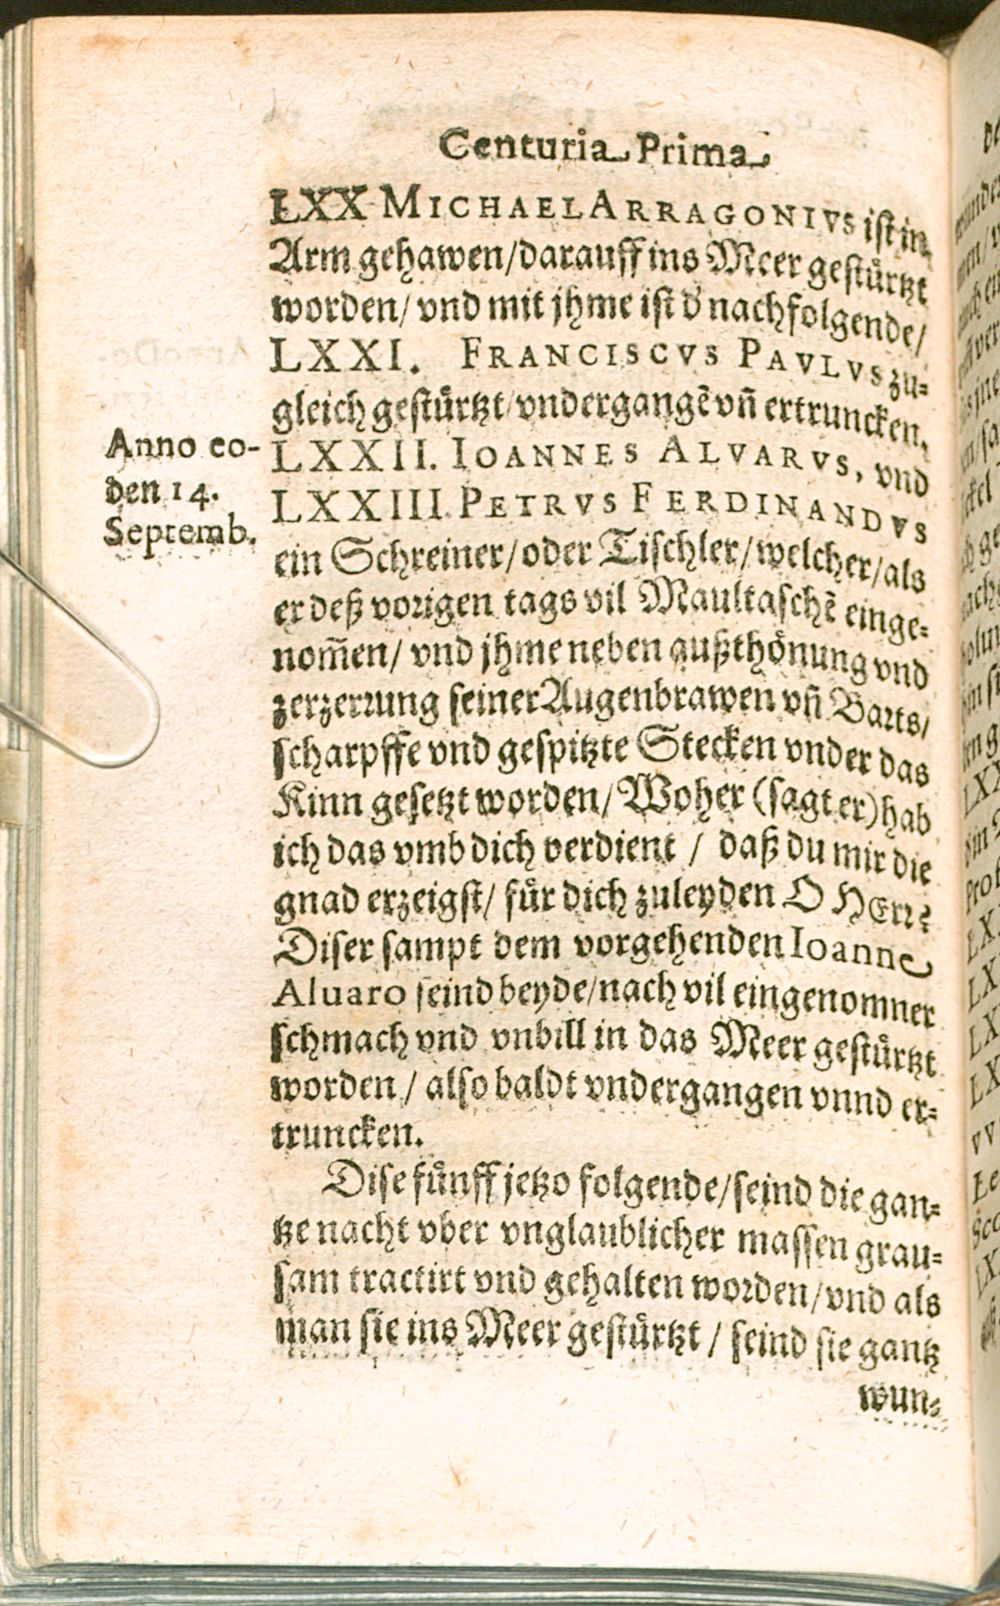 Centuria Prima
LXX MICHAEL ARRAGONIVS ist in
Arm gehawen/darauff ins Meer gestürtzt
worden/ vnd mit jhme ist d' nachfolgende/
LXXI. FRANCISCVS PAVLVS zu-
gleich gestürtzt/vndergangẽ vñ ertruncken.
LXXII. IOANNES ALVARVS, vnd
LXXIII PETRVS FERDINANDVS
Anno eo-
den 14.
Septemb.
ein Schreiner/oder Tischler/welcher/als
er deß vorigen tags vil Maultaschẽ einge-
nom̃en/ vnd jhme neben außthönung vnd
zerzerrung seiner Augenbrawen vñ Barts/
scharpffe vnd gespitzte Stecken vnder das
Kinn gesetzt worden/ Woher (sagt er) hab
ich das vmb dich verdient / daß du mir die
gnad erzeigst/ für dich zuleyden O HErr?
Diser sampt dem vorgehenden Ioanne
Aluaro seind beyde/nach vil eingenomner
schmach vnd vnbill in das Meer gestürtzt
worden / also baldt vndergangen vnnd er-
truncken.
Dise fünff jetzo folgende/seind die gan-
tze nacht vber vnglaublicher massen grau-
sam tractirt vnd gehalten worden/vnd als
man sie ins Meer gestürtzt / seind sie gantz
wun-